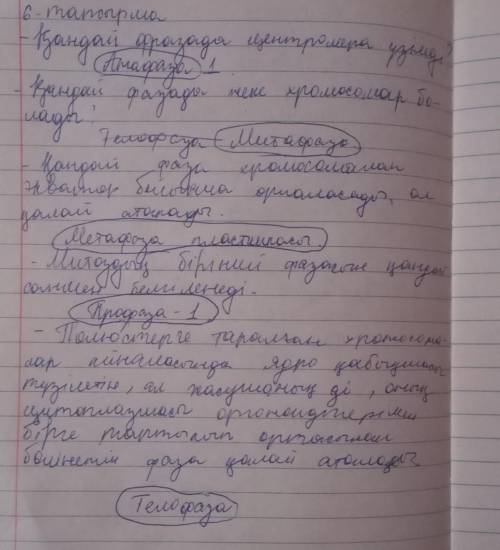 6-тапсырма
- Қандай фазада центромера үзіледі?
Анафаза 1
- Қандай фазада жеке хромосомар бо-
лады?
Телофаза - Митафаза
- Қандай фаза хромосомалан
экватор бойынша орналасады, ол
қалай аталады.
Метафаза пластинкасы.
- Митоздың бірінші фазасын қандай
санмен белгіленеді.
Профаза - 1
- Полюстерге таралған хромосома-
лар айналасында ядро қабықшасы
түзілетін, ал жасушаның ді, оның
цитоплазмасы органоидтерімен
бірге тартылып ортасынан
бөлінетін фаза қалай аталады
Телофаза